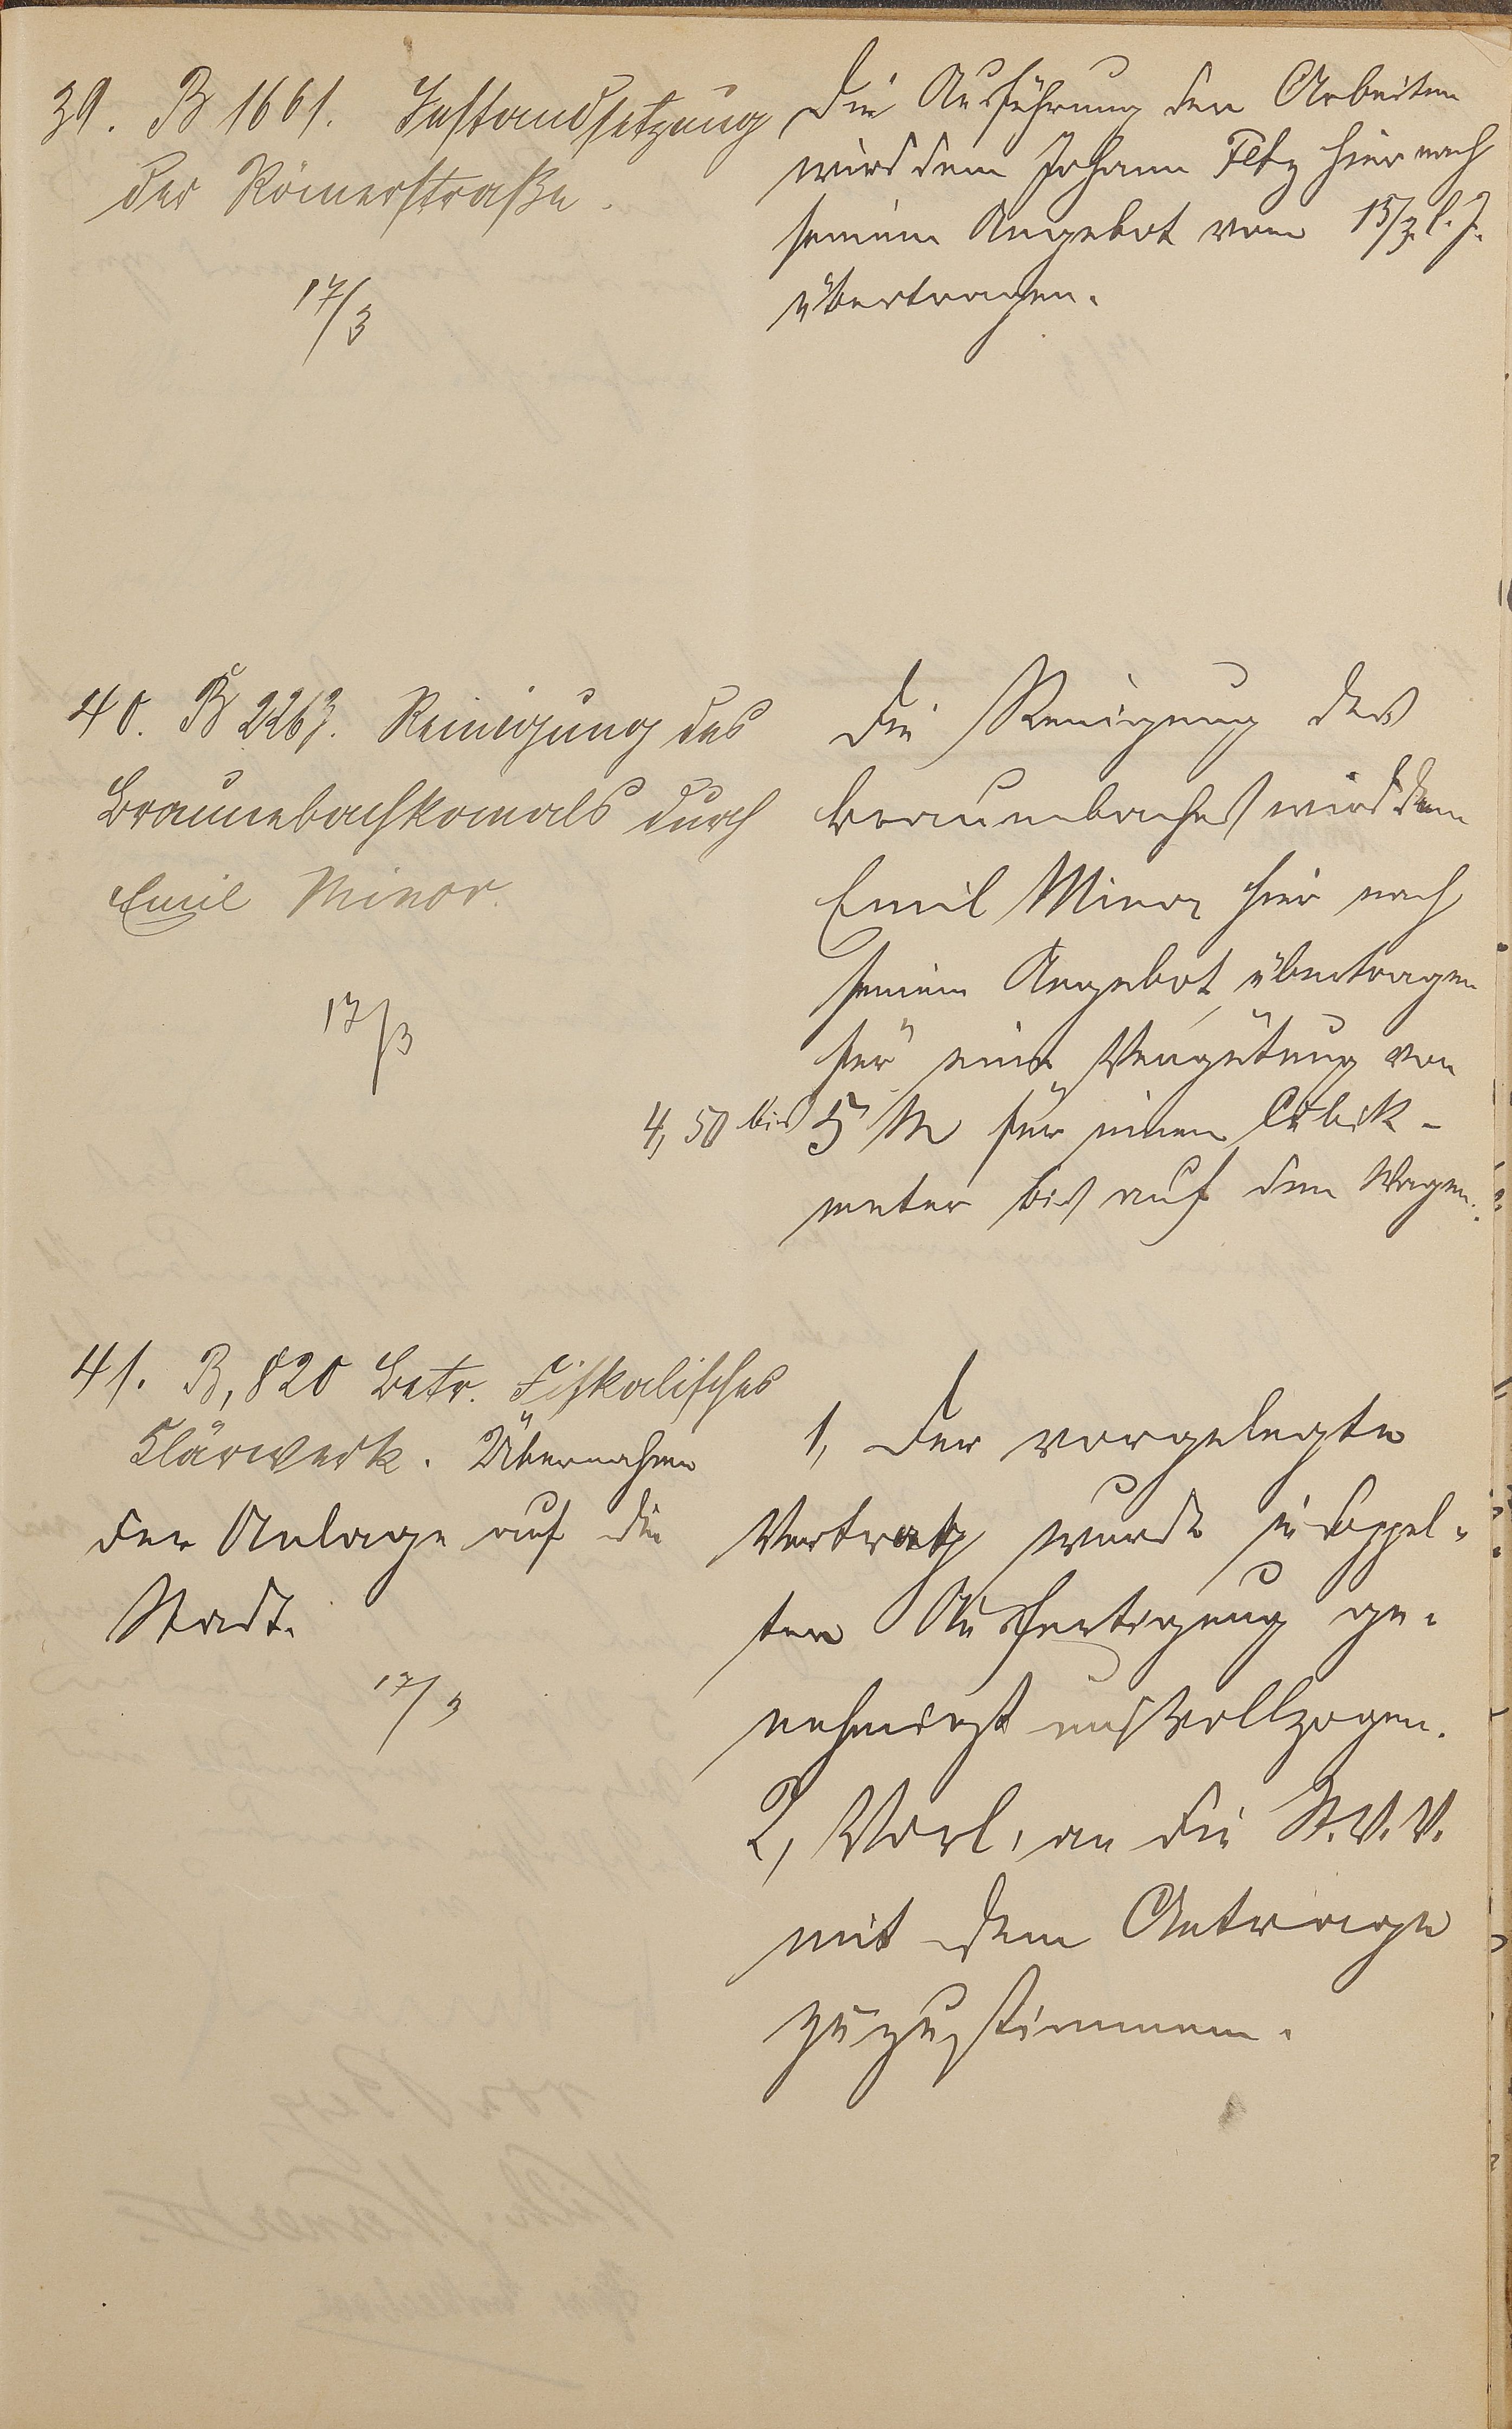 39. B 1661. Instandsetzung
der Römerstraße.
17/3
Die Ausführung der Arbeiten
wird dem Johann Fetz hier nach
seinem Angebot vom 15/3 l. J.
übertragen.
40. B 2263. Reinigung des
Braunebachkanals durch
Emil Minor.
17/3
Die Reinigung des
Braunebaches wird dem
Emil Minor hier nach
seinem Angebot übertragen
für eine Vergütung von
4,50 bis 5 M für einen Cubik-
meter bis auf den Wagen.
41. B, 820 Betr. Fiskalisches
Klärwerk. Übernahme
der Anlage auf die
Stadt.
17/3
1, Der vorgelegte
Vertrag wurde in doppel-
ter Ausfertigung ge-
nehmigt und vollzogen.
2, Vorl. an die St. V. V.
mit dem Antrage
zuzustimmen.